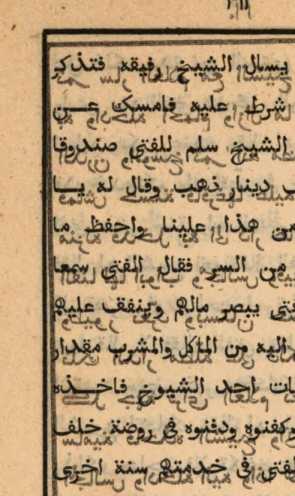 يسال الشيخ رفيقه فتذكر
شرط عليه فامسك عن
الشيخ سلم للفتى صندوقا
دينار ذهب وقال له يا
من هذا علينا واحفظ ما
من السر فقال الفتى سمعا
يبصر مالهم وينفق عليهم
اليه من المأكل والمشرب مقدار
احد الشيوخ فاخذه
وكفنوه ودفنوه في روضة خلف
في خدمتهم سنة اخرى